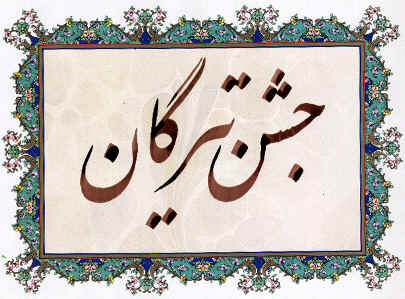 جشن تیرگان